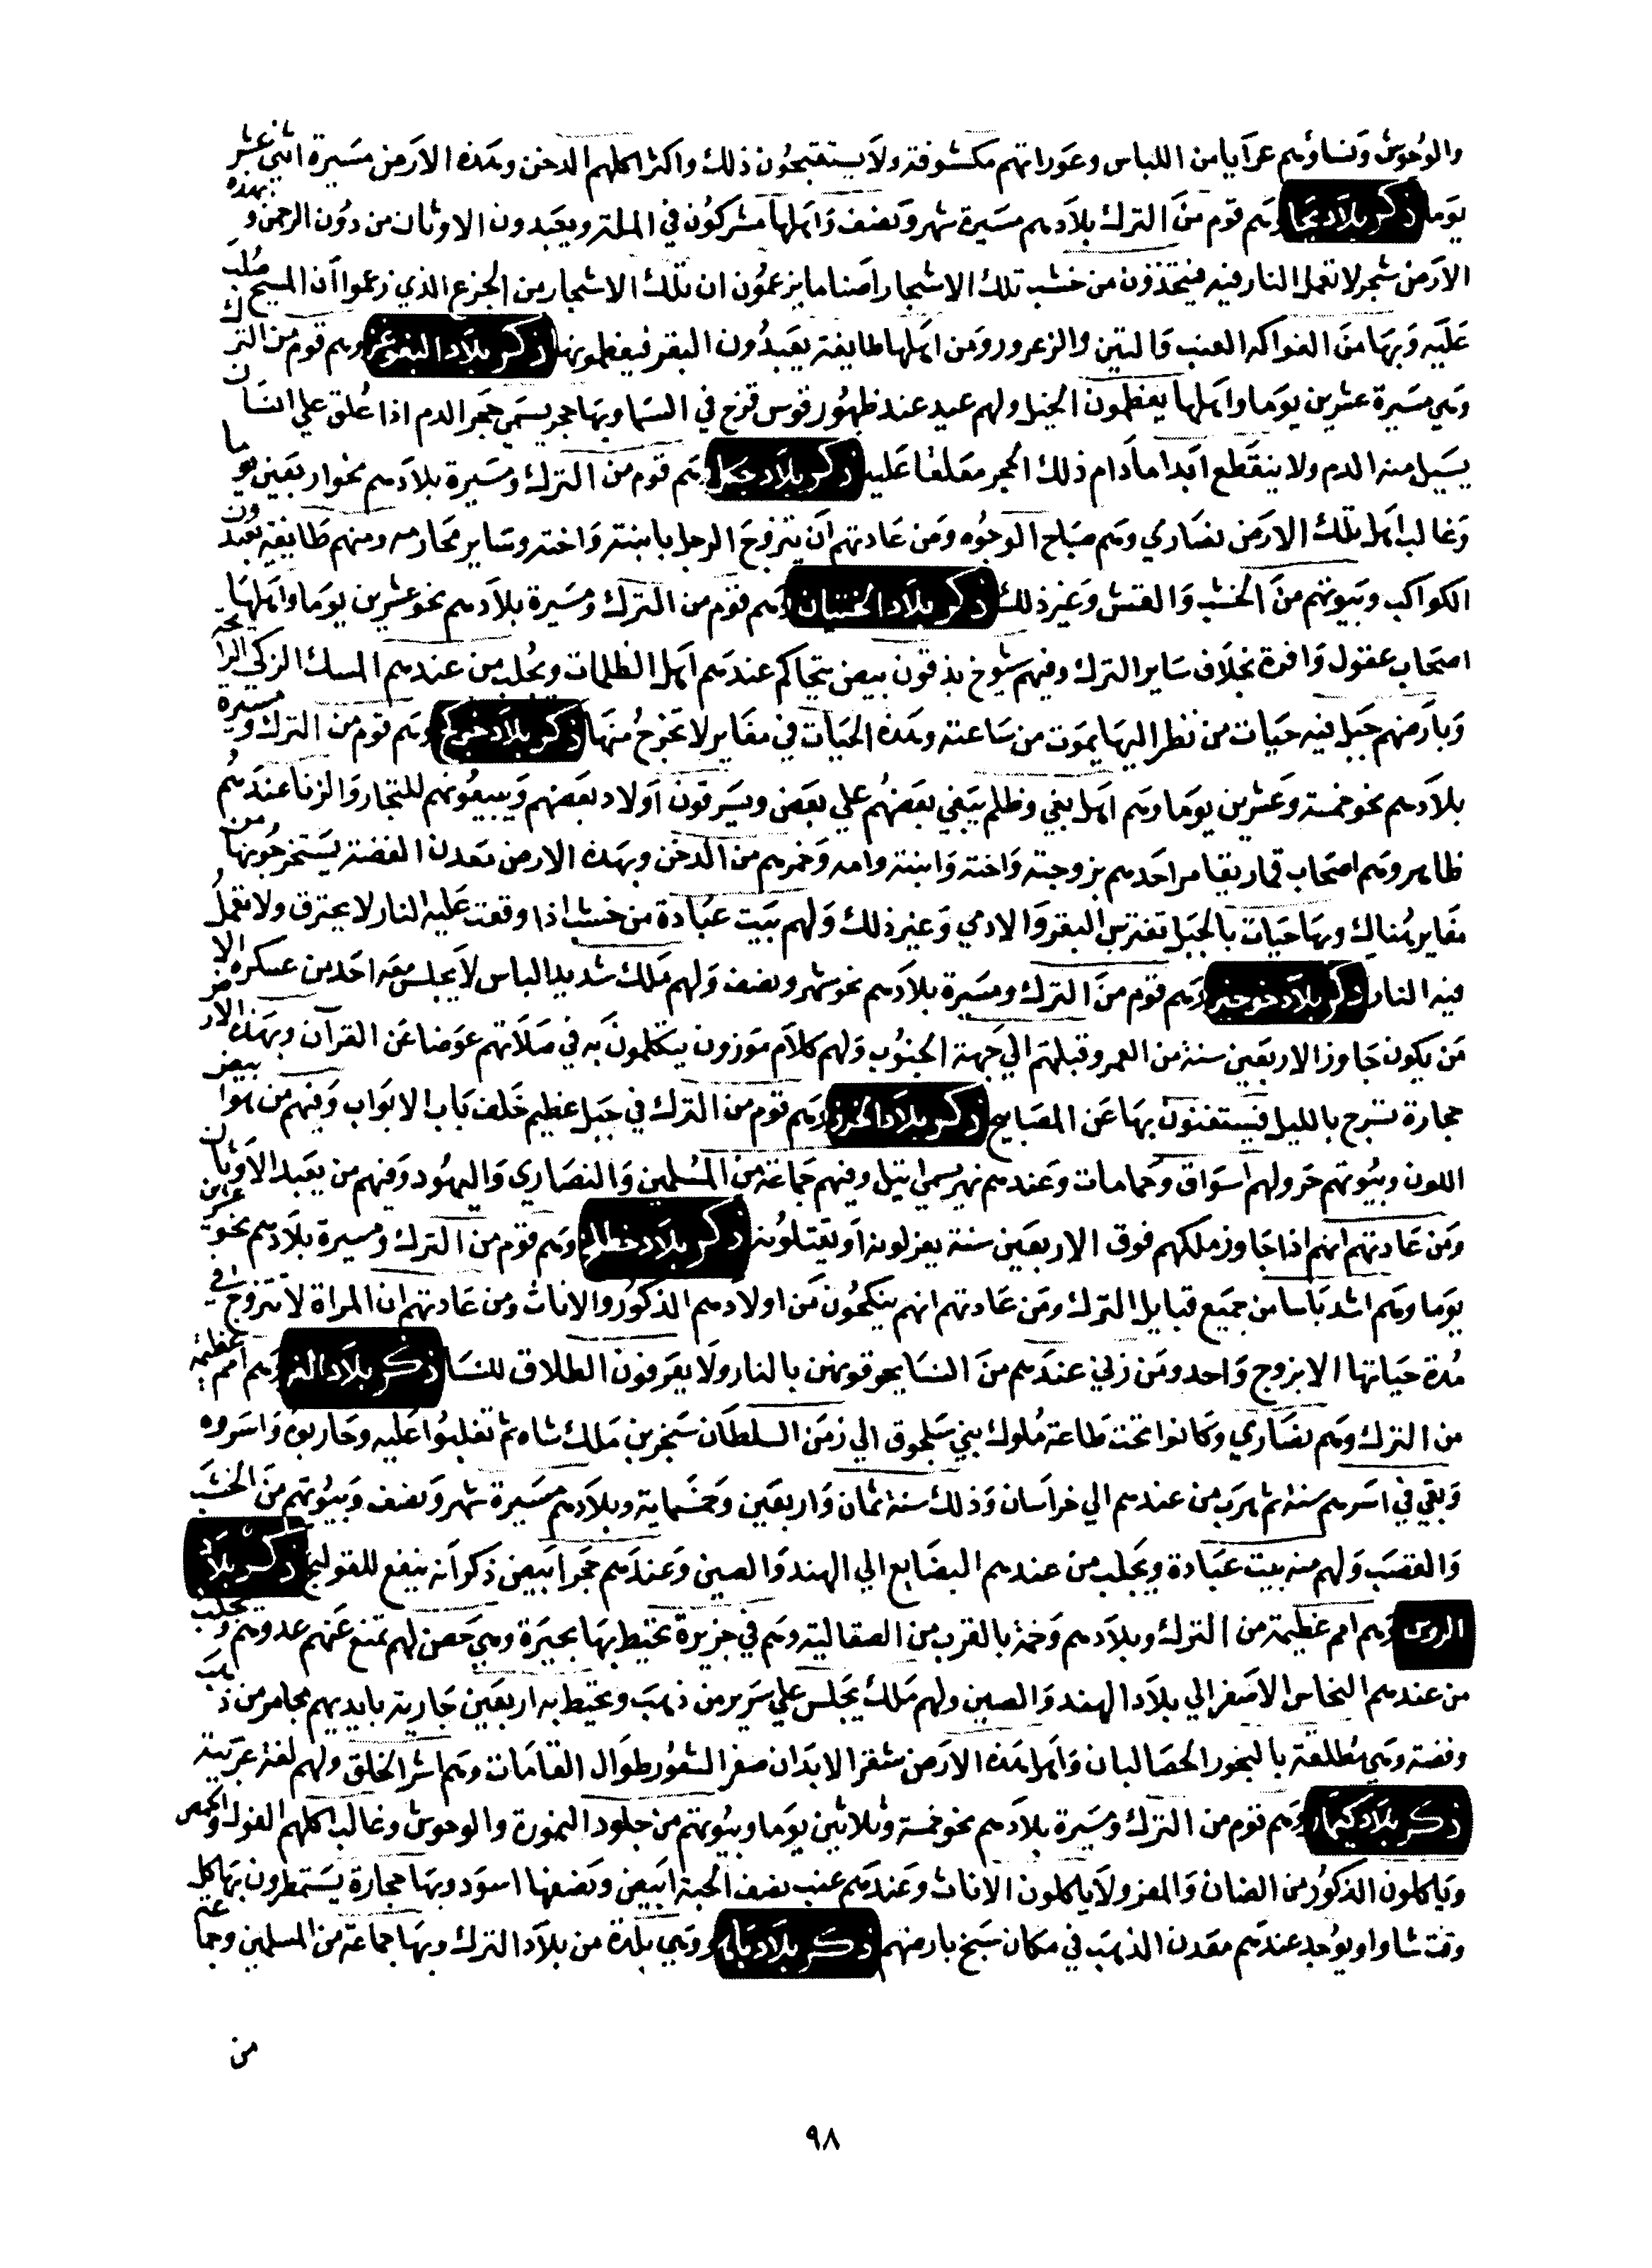 والوحوش ونساوهم عرايا من اللباس وعوراتهم مكشوفة ولا يستقبحون ذلك واكثر اكلهم الدخن وهذه الارض مسيرة اثني عشر
يوما ذكر بلاد بجا وهم قوم من الترك بلادهم مسيرة شهر ونصف واهلها مشركون في الملة ويعبدون الاوثان من دون الرحمن وبهذه
الارض شجر لا تعمل النار فيه فيتخذون من خشب تلك الاشجار اصناما يزعمون ان تلك الاشجار من الجزع الذي زعموا ان المسيح صلب
عليه وبها من الفواكه العنب والتين والزعرور ومن اهلها طايفة يعبدون البقر فيعظمونها ذكر بلاد البغوغز وهم قوم من الترك
وهي مسيرة عشرين يوما واهلها يعظمون الخيل ولهم عيد عند ظهور قوس قزح في السما وبها حجر يسمي حجر الدم اذا علق علي انسان
يسيل منه الدم ولا ينقطع ابدا مادام ذلك الحجر معلقا عليه ذكر بلاد جكل وهم قوم من الترك ومسيرة بلادهم نحو اربعين يوما
وغالب اهل تلك الارض نصاري وهم صباح الوجوه ومن عادتهم ان يتزوج الرجل بابنته واخته وساير محارمه ومنهم طايفة يعبدون
الكواكب وبيوتهم من الخشب والقش وغير ذلك ذكر بلاد الختيان وهم قوم من الترك ومسيرة بلادهم نحو عشرين يوما واهلها
اصحاب عقول وافرة بخلاف ساير الترك وفيهم شيوخ بذقون بيض يتحاكم عندهم اهل الظلمات ويجلب من عندهم المسك الزكي الرايحة
وبارضهم جبل فيه حيات من نظر اليها يموت من ساعته وهذه الحيات في مغاير لا تخرج منها ذكر بلاد خرلخ وهم قوم من الترك ومسيرة
بلادهم نحو خمسة وعشرين يوما وهم اهل بغي وظلم يبغي بعضهم علي بعض ويسرقون اولاد بعضهم ويبيعونهم للتجار والزنا عندهم
ظاهر وهم اصحاب قمار يقامر احدهم بزوجته واخته وابنته وامه وخمرهم من الدخن وبهذه الارض معدن الفضة يستخرجونها من
مغاير هناك وبها حيات بالجبل تفترس البقر والادمي وغير ذلك ولهم بيت عبادة من خشب اذا وقعت عليه النار لا يحترق ولا تعمل
فيه النار ذكر بلاد خرخيز وهم قوم من الترك ومسيرة بلادهم نحو شهر ونصف ولهم ملك شديد الباس لا يجلس معه احد من عسكره الا
من يكون جاوز الاربعين سنة من العمر وقبلتهم الي جهة الجنوب ولهم كلام موزون يتكلمون به في صلاتهم عوضا عن القرآن وبهذه الارض
حجارة تسرج بالليل فيستغنون بها عن المصابيح ذكر بلاد الخزر وهم قوم من الترك في جبل عظيم خلف باب الابواب وفيهم من هو ابيض
اللون وبيوتهم خر ولهم اسواق وحمامات وعندهم نهر يسمي اتيل وفيهم جماعة من المسلمين والنصاري واليهود وفيهم من يعبد الاوثان
ومن عادتهم انهم اذا جاوز ملكهم فوق الاربعين سنة يعزلونه او يقتلونه ذكر بلاد خطلخ وهم قوم من الترك ومسيرة بلادهم نحو عشرين
يوما وهم اشد باسا من جميع قبايل الترك ومن عادتهم انهم ينكحون من اولادهم الذكور والاناث ومن عادتهم ان المراة لا تتزوج في
مدة حياتها الا بزوج واحد ومن زني عندهم من النسا يحرقونهن بالنار ولا يعرفون الطلاق للنسا ذكر بلاد الغز وهم امم عظيمة
من الترك وهم نصاري وكانوا تحت طاعة ملوك بني سلجوق الي زمن السلطان سنجر بن ملك شاه ثم تغلبوا عليه وحاربوه واسروه
وبقي في اسرهم سنة ثم هرب من عندهم الي خراسان وذلك سنة ثمان واربعين وخمسماية وبلادهم مسيرة شهر ونصف وبيوتهم من الخشب
والقصب ولهم منه بيت عبادة ويجلب من عندهم البضايع الي الهند والصين وعندهم حجر ابيض ذكر انه ينفع للقولنج ذكر بلاد
الروس وهم امم عظيمة من الترك وبلادهم وخمة بالقرب من الصقالية وهم في جزيرة تحيط بها بحيرة وهي حصن لهم تمنع عنهم عدوهم ويجلب
من عندهم النحاس الاصفر الي بلاد الهند والصين ولهم ملك يجلس علي سرير من ذهب وتحيط به اربعين جارية بايديهم مجامر من ذهب
وفضة وهي مطلعة بالبخور الحصالبان واهل هذه الارض شقر الابدان صفر الشعور طوال القامات وهم اشر الخلق ولهم لغة عربية
ذكر بلاد كيمار وهم قوم من الترك ومسيرة بلادهم نحو خمسة وثلاثين يوما وبيوتهم من جلود النمورة والوحوش وغالب اكلهم الفول والحمص
وياكلون الذكور من الضان والمعز ولا ياكلون الاناث وعندهم عنب نصف الحبة ابيض ونصفها اسود وبها حجارة يستمطرون بها كل
وقت شاوا ويوجد عندهم معدن الذهب في مكان سبخ بارضهم ذكر بلاد باي وهي بلدة من بلاد الترك وبها جماعة من المسلمين وجماعة
من
٩٨